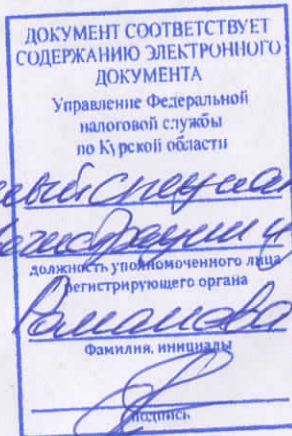 ДОКУМЕНТ СООТВЕТСТВУЕТ
СОДЕРЖАНИЮ ЭЛЕКТРОННОГО
ДОКУМЕНТА
Управление Федеральной
налоговой службы
по Курской области
должность уполномоченного лица
регистрирующего органа
Романова
Фамилия, инициалы
подпись